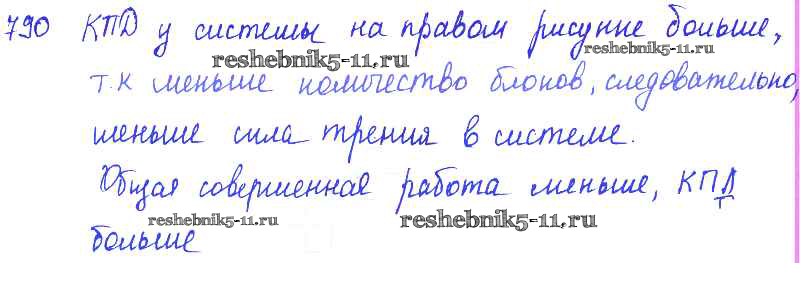 790 КПД у системы на правом рисунке больше,
reshebnik5-11.ru reshebnik5-11.ru
т.к меньше количество блоков, следовательно,
меньше сила трения в системе.
Общая совершенная работа меньше, КПД
reshebnik5-11.ru reshebnik5-11.ru
больше